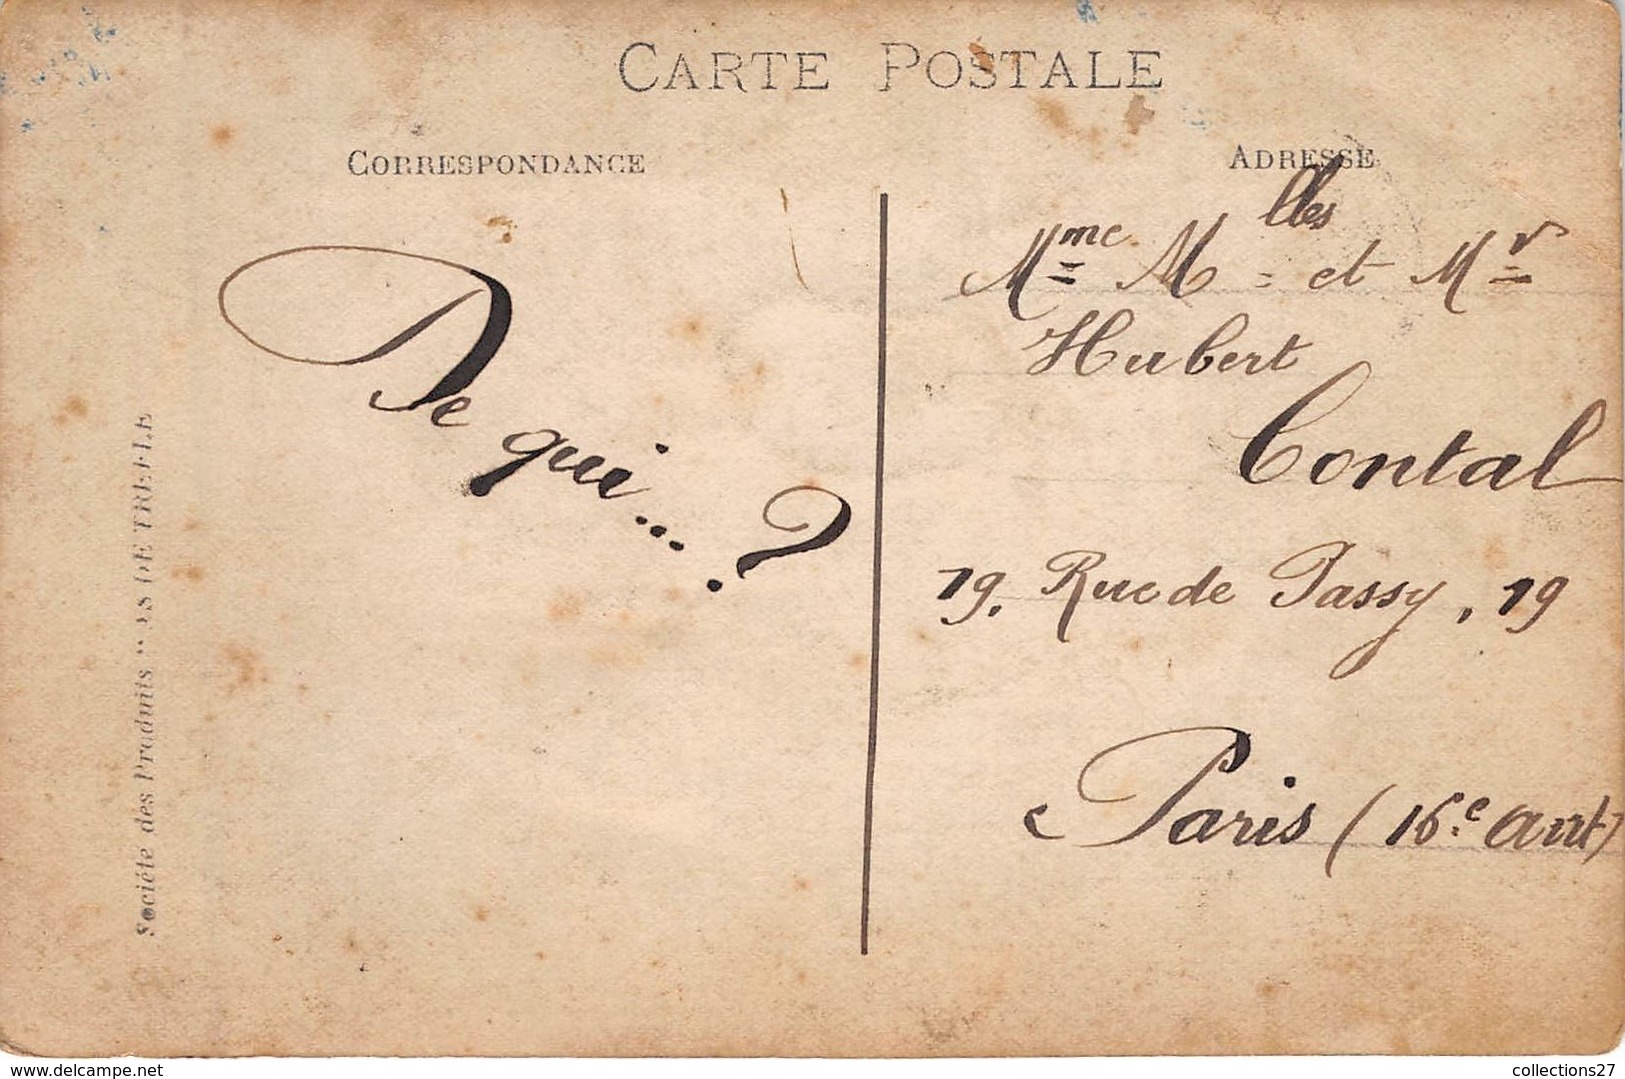 CARTE POSTALE
CORRESPONDANCE
ADRESSE
De qui... ?
Mme Mlles et Mr
Hubert
Contal
19, Rue de Passy, 19
Paris (16.e arrt)
Société des Produits "AS DE TREFLE
www.delcampe.net
collections27